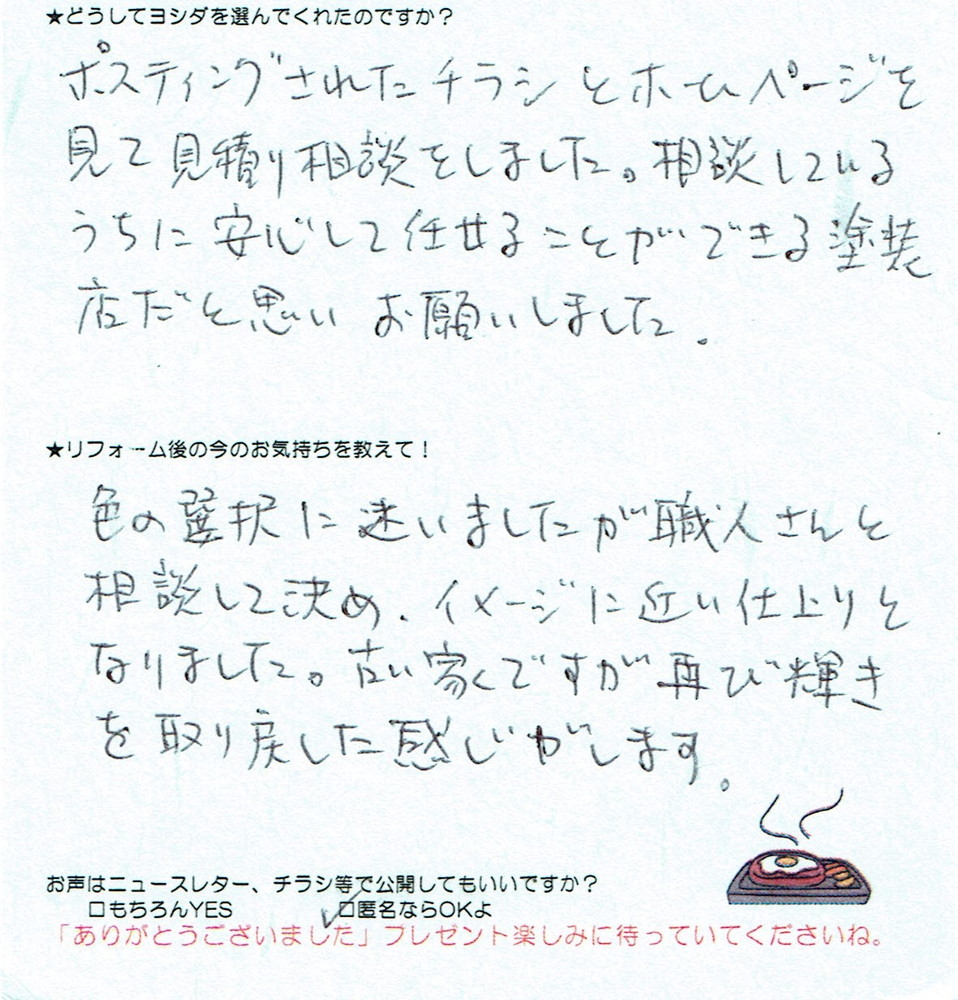 ★どうしてヨシダを選んでくれたのですか?
ポスティングされたチラシとホームページを
見て見積り相談をしました。相談している
うちに安心して任せることができる塗装
店だと思いお願いしました。
★リフォーム後の今のお気持ちを教えて!
色の選択に迷いましたが職人さんと
相談して決め、イメージに近い仕上りと
なりました。古い家ですが再び輝き
を取り戻した感じがします。
お声はニュースレター、チラシ等で公開してもいいですか?
□もちろんYES ☑匿名ならOKよ
「ありがとうございました」プレゼント楽しみに待っていてくださいね。